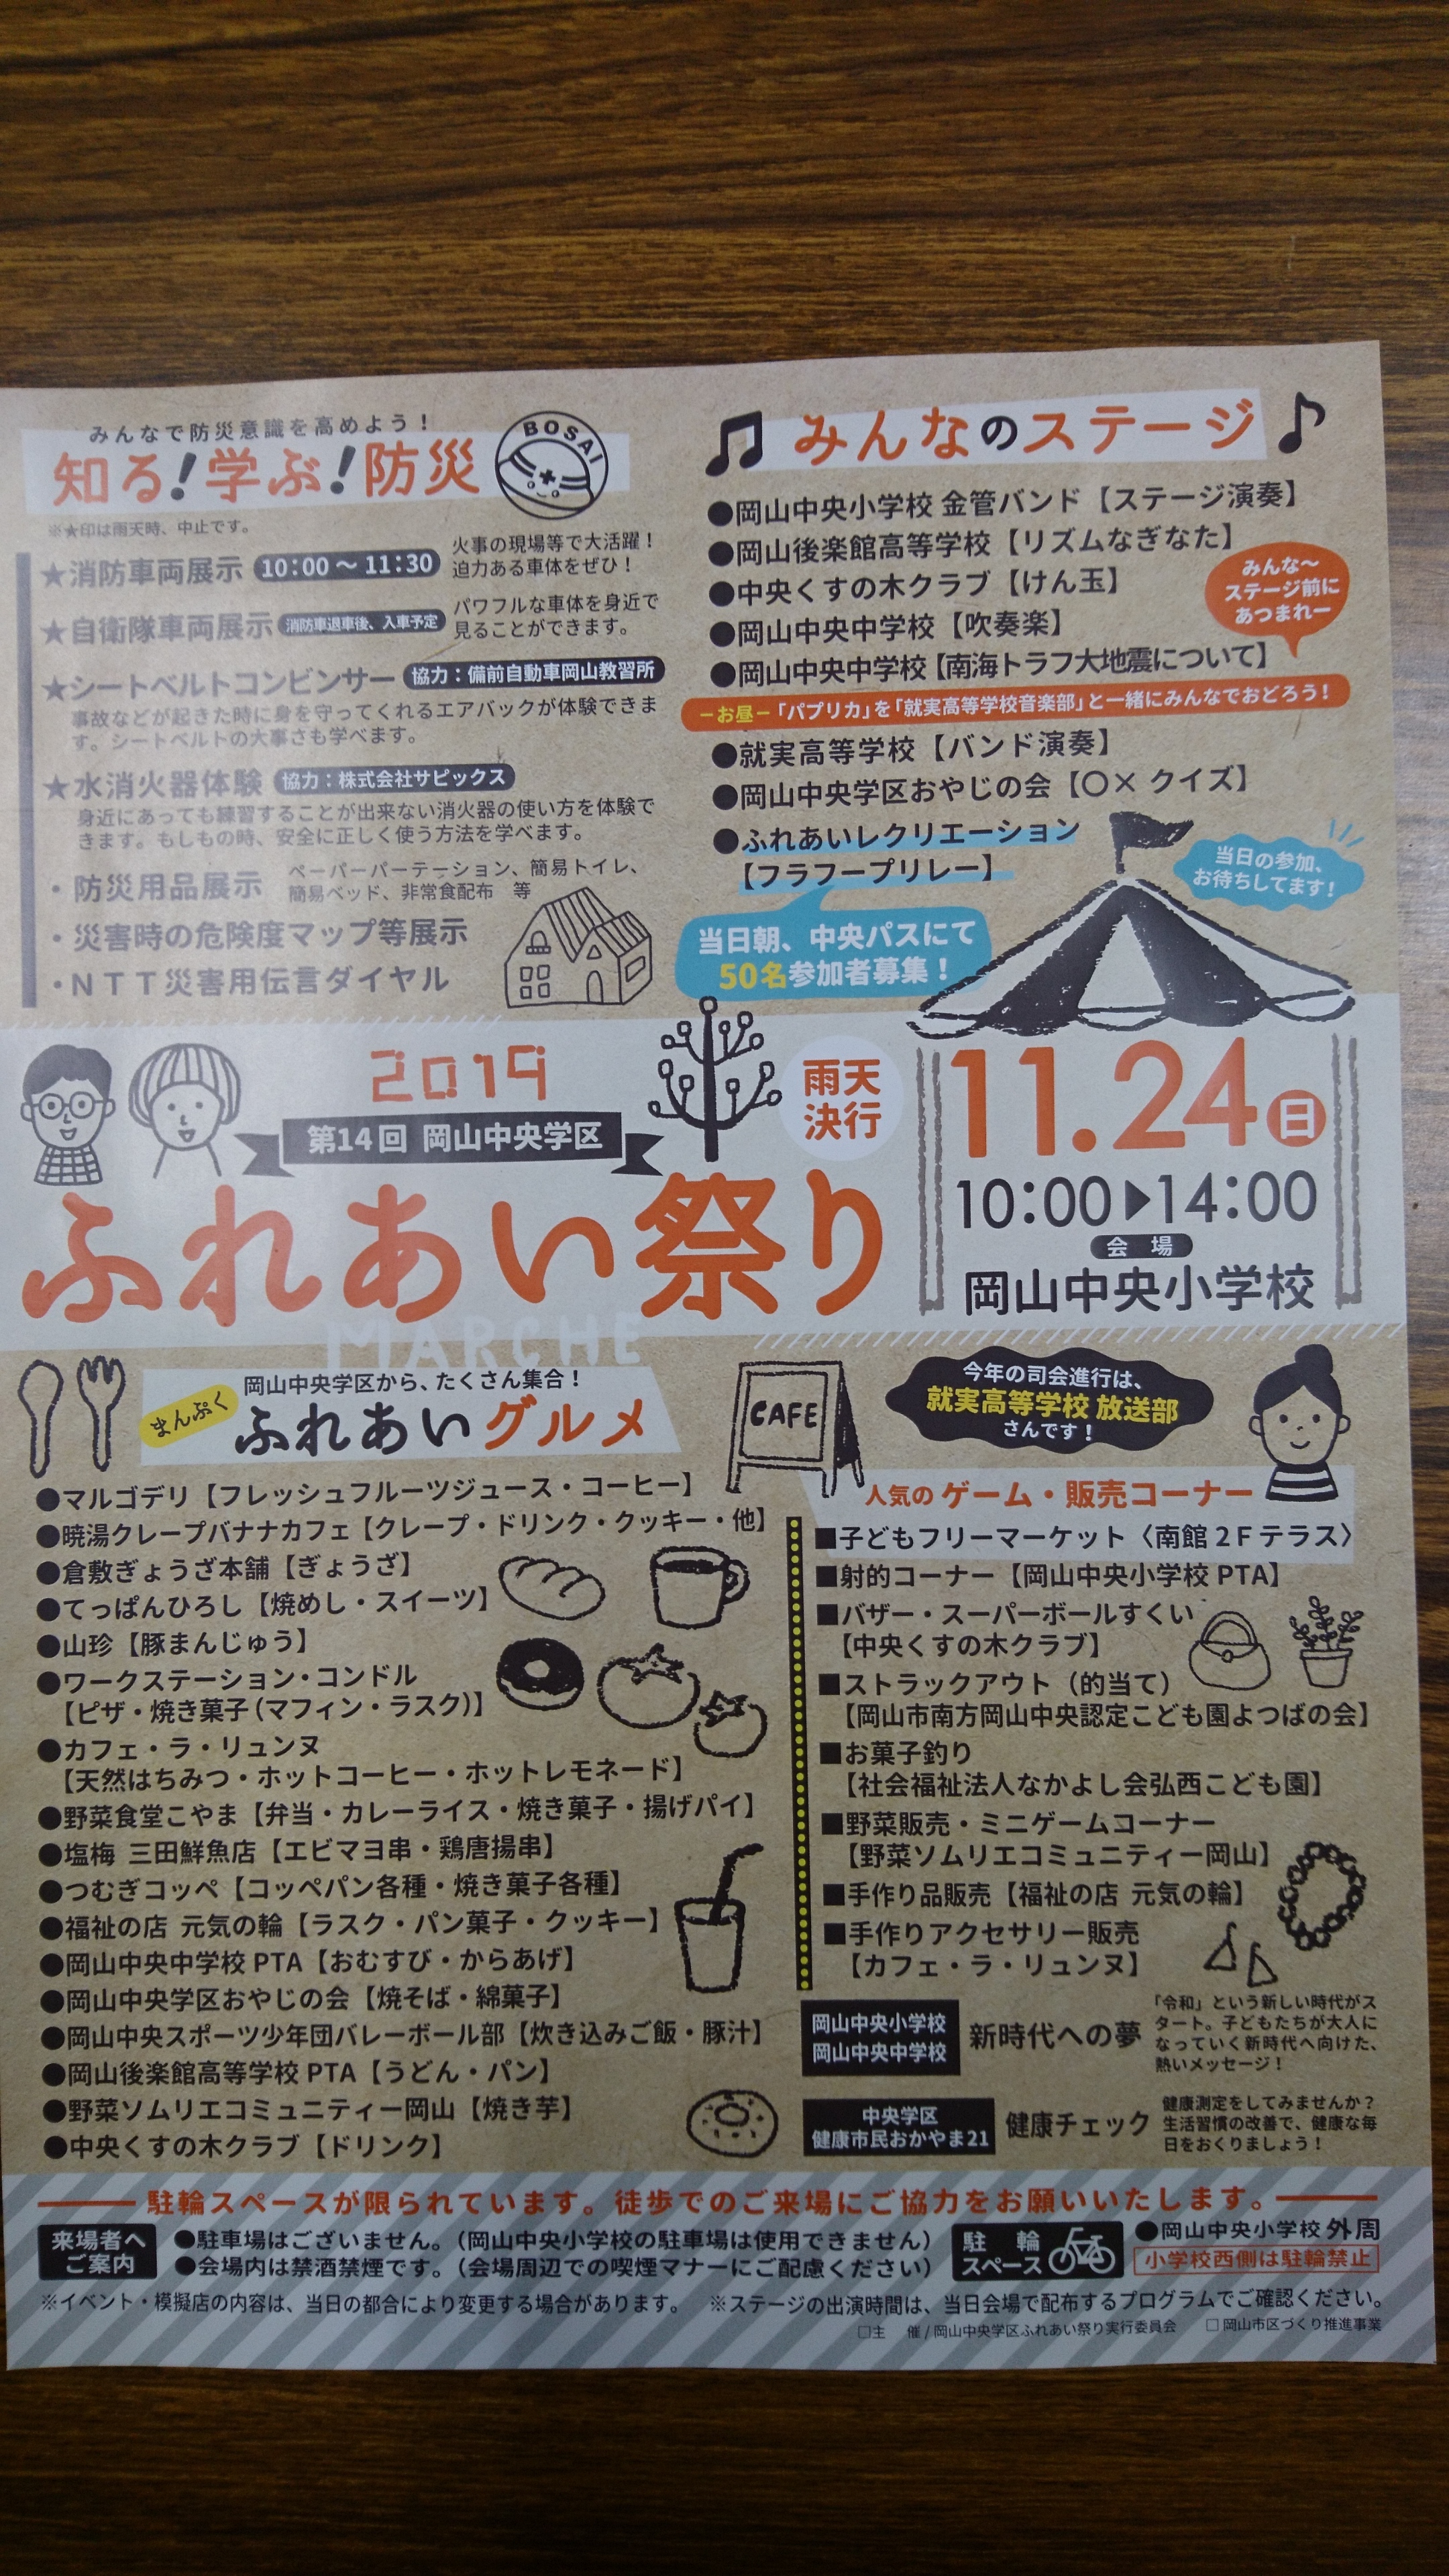 みんなで防災意識を高めよう！
知る！学ぶ！防災
BOSAI
※★印は雨天時、中止です。
★消防車両展示 10:00～11:30
火事の現場等で大活躍！
迫力ある車体をぜひ！
★自衛隊車両展示 消防車退車後、入車予定
パワフルな車体を身近で
見ることができます。
★シートベルトコンビンサー 協力：備前自動車岡山教習所
事故などが起きた時に身を守ってくれるエアバックが体験できま
す。シートベルトの大事さも学べます。
★水消火器体験 協力：株式会社サピックス
身近にあっても練習することが出来ない消火器の使い方を体験で
きます。もしもの時、安全に正しく使う方法を学べます。
・防災用品展示
ペーパーパーテーション、簡易トイレ、
簡易ベッド、非常食配布 等
・災害時の危険度マップ等展示
・NTT災害用伝言ダイヤル
みんなのステージ
●岡山中央小学校 金管バンド【ステージ演奏】
●岡山後楽館高等学校【リズムなぎなた】
●中央くすの木クラブ【けん玉】
●岡山中央中学校【吹奏楽】
●岡山中央中学校【南海トラフ大地震について】
みんな～
ステージ前に
あつまれー
－お昼－「パプリカ」を「就実高等学校音楽部」と一緒にみんなでおどろう！
●就実高等学校【バンド演奏】
●岡山中央学区おやじの会【○× クイズ】
●ふれあいレクリエーション
【フラフープリレー】
当日の参加、
お待ちしてます！
当日朝、中央パスにて
50名参加者募集！
2019
第14回 岡山中央学区
ふれあい祭り
MARCHE
雨天
決行
11.24日
10:00▶14:00
会 場
岡山中央小学校
岡山中央学区から、たくさん集合！
まんぷく
ふれあいグルメ
●マルゴデリ【フレッシュフルーツジュース・コーヒー】
●暁湯クレープバナナカフェ【クレープ・ドリンク・クッキー・他】
●倉敷ぎょうざ本舗【ぎょうざ】
●てっぱんひろし【焼めし・スイーツ】
●山珍【豚まんじゅう】
●ワークステーション・コンドル
【ピザ・焼き菓子（マフィン・ラスク）】
●カフェ・ラ・リュンヌ
【天然はちみつ・ホットコーヒー・ホットレモネード】
●野菜食堂こやま【弁当・カレーライス・焼き菓子・揚げパイ】
●塩梅 三田鮮魚店【エビマヨ串・鶏唐揚串】
●つむぎコッペ【コッペパン各種・焼き菓子各種】
●福祉の店 元気の輪【ラスク・パン菓子・クッキー】
●岡山中央中学校 PTA【おむすび・からあげ】
●岡山中央学区おやじの会【焼そば・綿菓子】
●岡山中央スポーツ少年団バレーボール部【炊き込みご飯・豚汁】
●岡山後楽館高等学校 PTA【うどん・パン】
●野菜ソムリエコミュニティー岡山【焼き芋】
●中央くすの木クラブ【ドリンク】
CAFE
今年の司会進行は、
就実高等学校 放送部
さんです！
人気のゲーム・販売コーナー
■子どもフリーマーケット〈南館2Fテラス〉
■射的コーナー【岡山中央小学校 PTA】
■バザー・スーパーボールすくい
【中央くすの木クラブ】
■ストラックアウト（的当て）
【岡山市南方岡山中央認定こども園よつばの会】
■お菓子釣り
【社会福祉法人なかよし会弘西こども園】
■野菜販売・ミニゲームコーナー
【野菜ソムリエコミュニティー岡山】
■手作り品販売【福祉の店 元気の輪】
■手作りアクセサリー販売
【カフェ・ラ・リュンヌ】
岡山中央小学校
岡山中央中学校
新時代への夢
「令和」という新しい時代がス
タート。子どもたちが大人に
なっていく新時代へ向けた、
熱いメッセージ！
中央学区
健康市民おかやま21
健康チェック
健康測定をしてみませんか？
生活習慣の改善で、健康な毎
日をおくりましょう！
駐輪スペースが限られています。徒歩でのご来場にご協力をお願いいたします。
来場者へ
ご案内
●駐車場はございません。（岡山中央小学校の駐車場は使用できません）
●会場内は禁酒禁煙です。（会場周辺での喫煙マナーにご配慮ください）
駐 輪
スペース
●岡山中央小学校 外周
小学校西側は駐輪禁止
※イベント・模擬店の内容は、当日の都合により変更する場合があります。 ※ステージの出演時間は、当日会場で配布するプログラムでご確認ください。
□主 催/岡山中央学区ふれあい祭り実行委員会 □岡山市区づくり推進事業